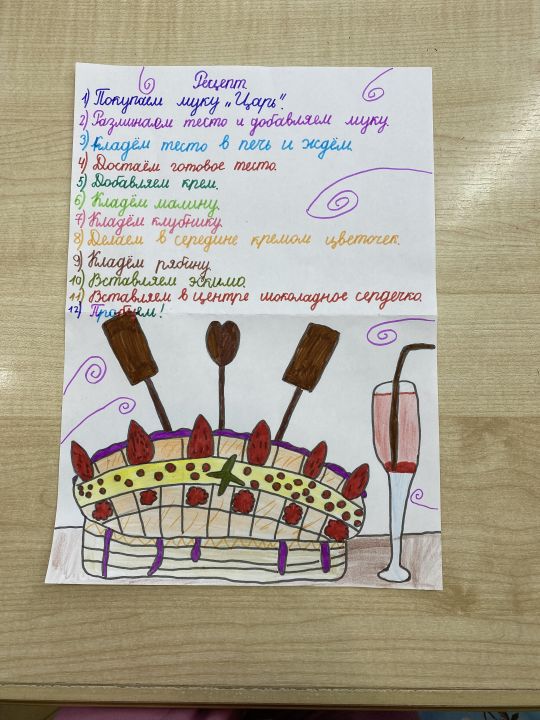 Рецепт
1) Покупаем муку „Царь".
2) Разминаем тесто и добавляем муку.
3) Кладём тесто в печь и ждём.
4) Достаём готовое тесто.
5) Добавляем крем.
6) Кладём малину.
7) Кладём клубнику.
8) Делаем в середине кремом цветочек.
9) Кладём рябину.
10) Вставляем эскимо.
11) Вставляем в центре шоколадное сердечко.
12) Пробуем!